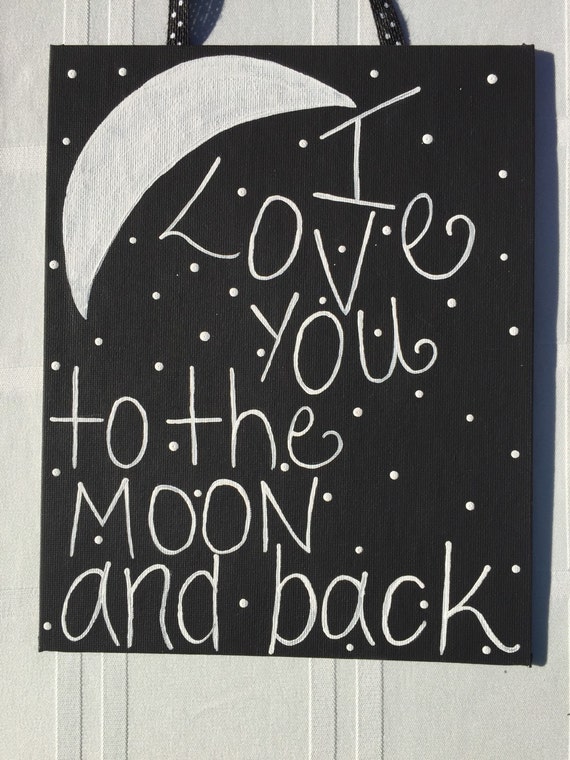 I
Love
you
to the
MOON
and back